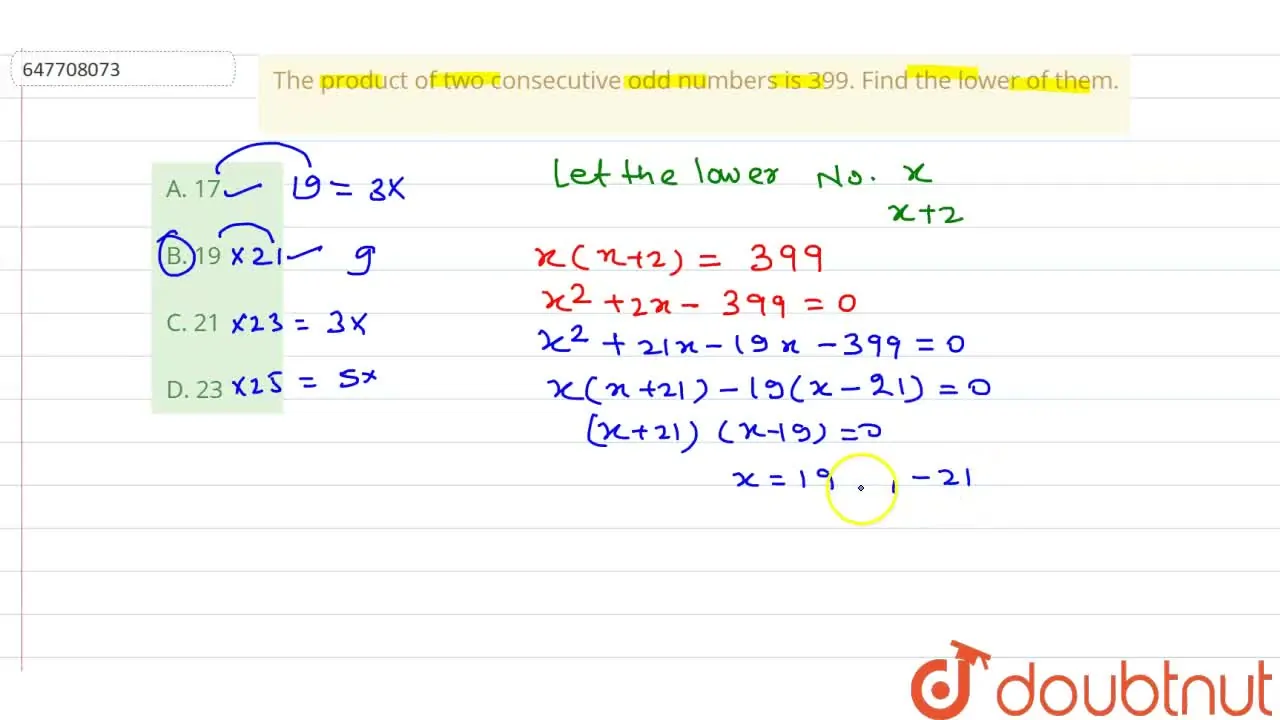 647708073
The product of two consecutive odd numbers is 399. Find the lower of them.
A. 17 ✓ 19 = 3×
B. 19 × 21 ✓ 9
C. 21 × 23 = 3×
D. 23 × 25 = 5×
Let the lower No. x
x+2
x(x+2) = 399
x² + 2x - 399 = 0
x² + 21x - 19x - 399 = 0
x(x+21) - 19(x-21) = 0
(x+21) (x-19) = 0
x = 19, , -21
doubtnut